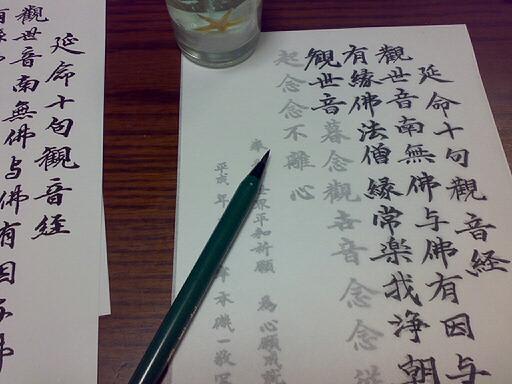 延命十句觀音経
觀世音南無佛与佛有因与
有縁佛法僧縁常楽我浄朝
観世音暮念觀世音念念従
起念念不離心
界平和祈願 為心願成就
平成 年 一敬写
延命十句觀音経
觀世音南無佛与佛有因与佛
有縁